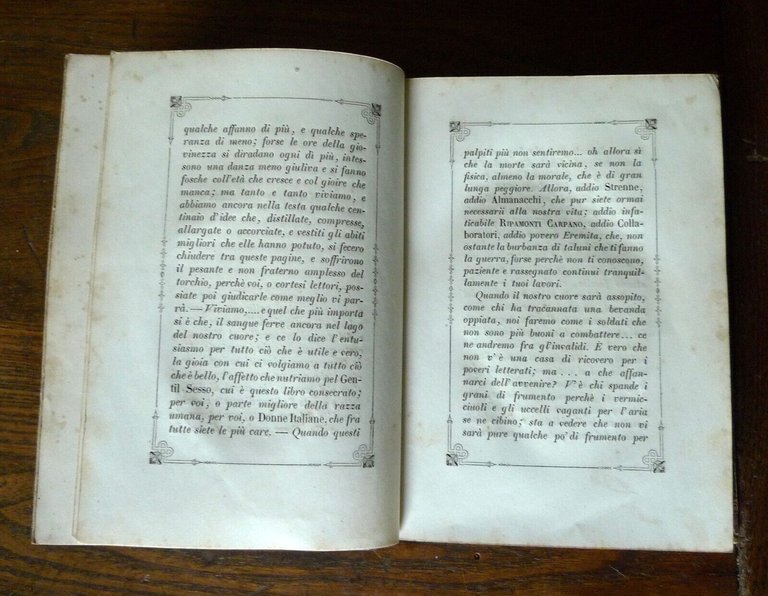 qualche affanno di più, e qualche spe-
ranza di meno; forse le ore della gio-
vinezza si diradano ogni dì più, intes-
sono una danza meno giuliva e si fanno
fosche coll'età che cresce e col gioire che
manca; ma tanto e tanto viviamo, e
abbiamo ancora nella testa qualche cen-
tinaio d'idee che, distillate, compresse,
allargate o accorciate, e vestiti gli abiti
migliori che elle hanno potuto, si fecero
chiudere tra queste pagine, e soffrirono
il pesante e non fraterno amplesso del
torchio, perchè voi, o cortesi lettori, pos-
siate poi giudicarle come meglio vi par-
rà. — Viviamo,....e quel che più importa
si è che, il sangue ferve ancora nel lago
del nostro cuore; e ce lo dice l'entu-
siasmo per tutto ciò che è utile e vero,
la gioia con cui ci volgiamo a tutto ciò
che è bello, l'affetto che nutriamo pel Gen-
til Sesso, cui è questo libro consecrato;
per voi, o parte migliore della razza
umana, per voi, o Donne Italiane, che fra
tutte siete le più care. — Quando questi
palpiti più non sentiremo... oh allora sì
che la morte sarà vicina, se non la
fisica, almeno la morale, che è di gran
lunga peggiore. Allora, addio Strenne,
addio Almanacchi, che pur siete ormai
necessarii alla nostra vita; addio infa-
ticabile RIPAMONTI CARPANO, addio Colla-
boratori, addio povero Eremita, che, non
ostante la burbanza di taluni che ti fanno
la guerra, forse perchè non ti conoscono,
paziente e rassegnato continui tranquil-
lamente i tuoi lavori.
Quando il nostro cuore sarà assopito,
come chi ha tracannata una bevanda
oppiata, noi faremo come i soldati che
non sono più buoni a combattere... ce
ne andremo fra gl'invalidi. E vero che
non v'è una casa di ricovero per i
poveri letterati; ma... a che affan-
narci dell'avvenire? V'è chi spande i
grani di frumento perchè i vermic-
ciuoli e gli uccelli vaganti per l'aria
se ne cibino; sta a vedere che non vi
sarà pure qualche po' di frumento per